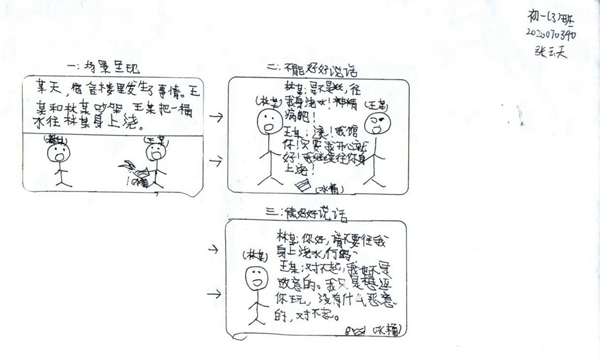 初一(3)班
张云天
一：场景呈现
某天，宿舍楼里发生了事情。王
某和林某吵架 王某把一桶
水往林某身上浇。
(林某)
(王某)
(水桶)
二：不能好好说话
(林某)
(王某)
往
我身上浇水！神经
病吧！
王某：
你！只要我开心就
好！我继续往你身
上浇！
(水桶)
三：能好好说话
(林某)
林某：你好，请不要往我
身上浇水，行吗？
王某：对不起，我也不是
故意的。我只是想逗
你玩，没有什么恶意
的，对不起。
(水桶)